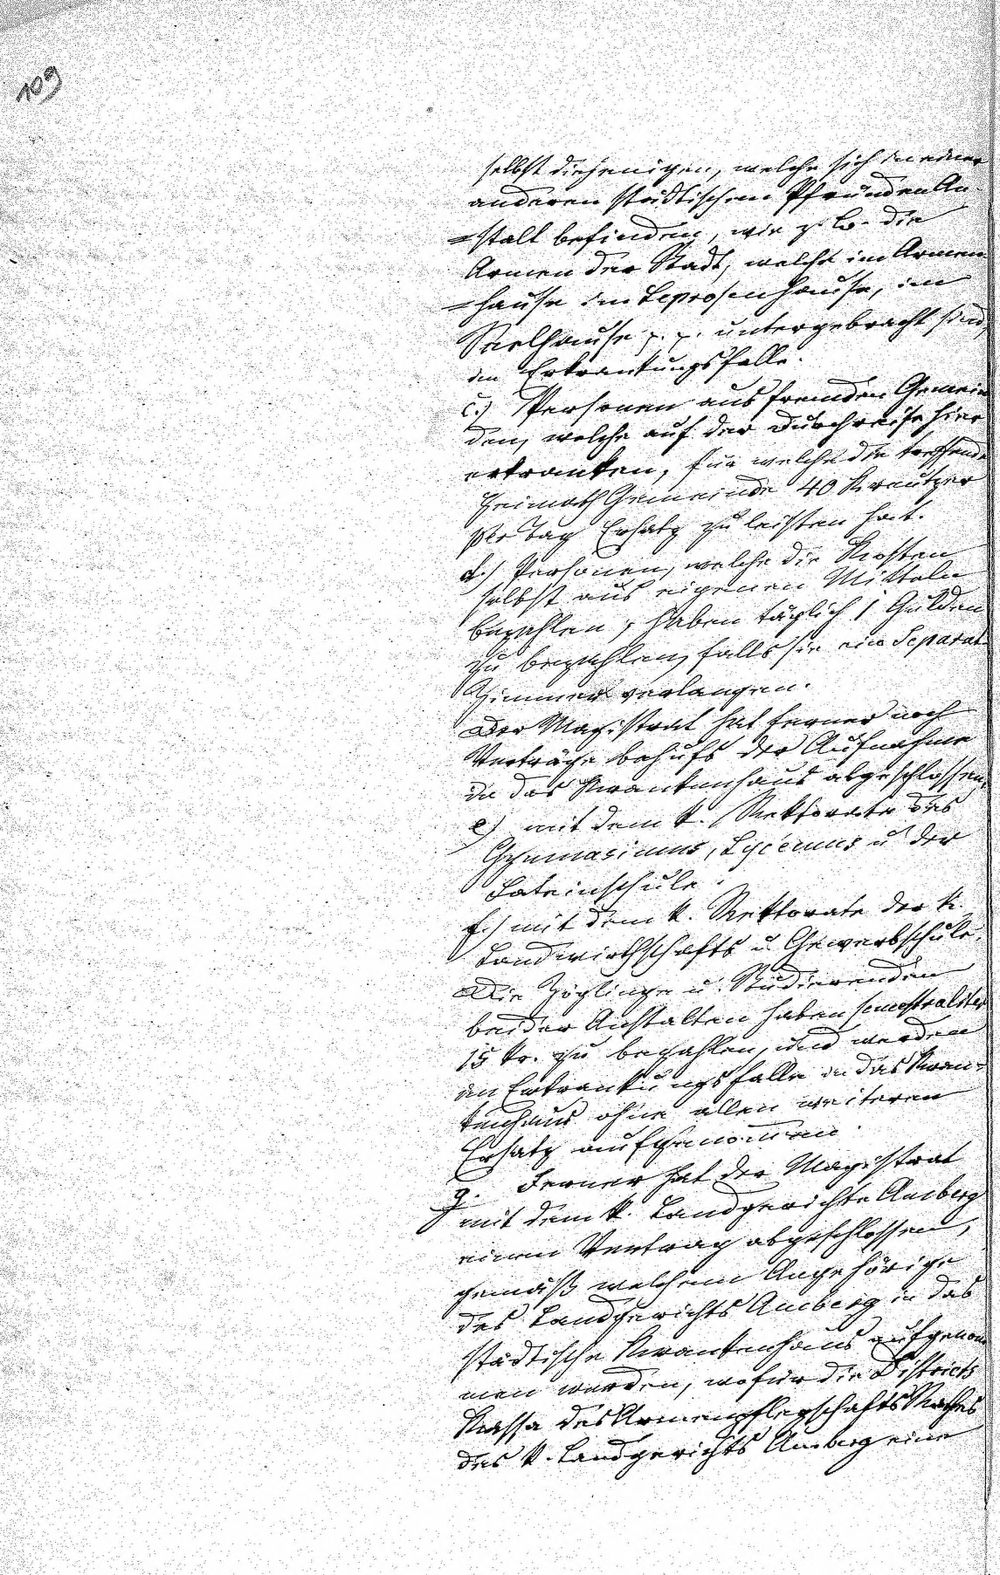 109
selbst diejenigen, welche sich in einer
anderen städtischen Pfründen An
=stalt befinden, wie z. B. die
Armen der Stadt, welche im Armen
=hause im Leprosenhause, im
Seelhause p. p. untergebracht sind,
im Erkrankungsfalle.
c.) Personen aus fremden Gemein
den, welche auf der Durchreise hier
erkranken, für welche die treffende
Heimath Gemeinde 40 Kreutzer
per Tag Ersatz zu leisten hat.
d.) Personen, welche die Kosten
selbst aus eigenen Mitteln
bezahlen, haben täglich 1 Gulden
zu bezahlen, falls sie ein Separat
Zimmer verlangen.
Der Magistrat hat ferner noch
Verträge behufs der Aufnahme
in das Krankenhaus abgeschlossen,
e) mit dem k. Rektorate des
Gymnasiums, Lyceums u der
Lateinschule.
f.) mit dem k. Rektorate der k.
Landwirthschafts u. Gewerbschule.
Die Zöglinge u. Studierenden
beider Anstalten haben semestraliter
15 kr. zu bezahlen, und werden
im Erkrankungsfalle in das Kran=
kenhaus ohne allen weiteren
Ersatz aufgenommen.
g. Ferner hat der Magistrat
mit dem k. Landgerichte Amberg
einen Vertrag abgeschlossen,
gemäß welchem Angehörige
des Landgerichts Amberg in das
städtische Krankenhaus aufgenom
men werden, wofür die Districts
Kassa des Armenpflegschafts Rathes
des k. Landgerichts Amberg eine